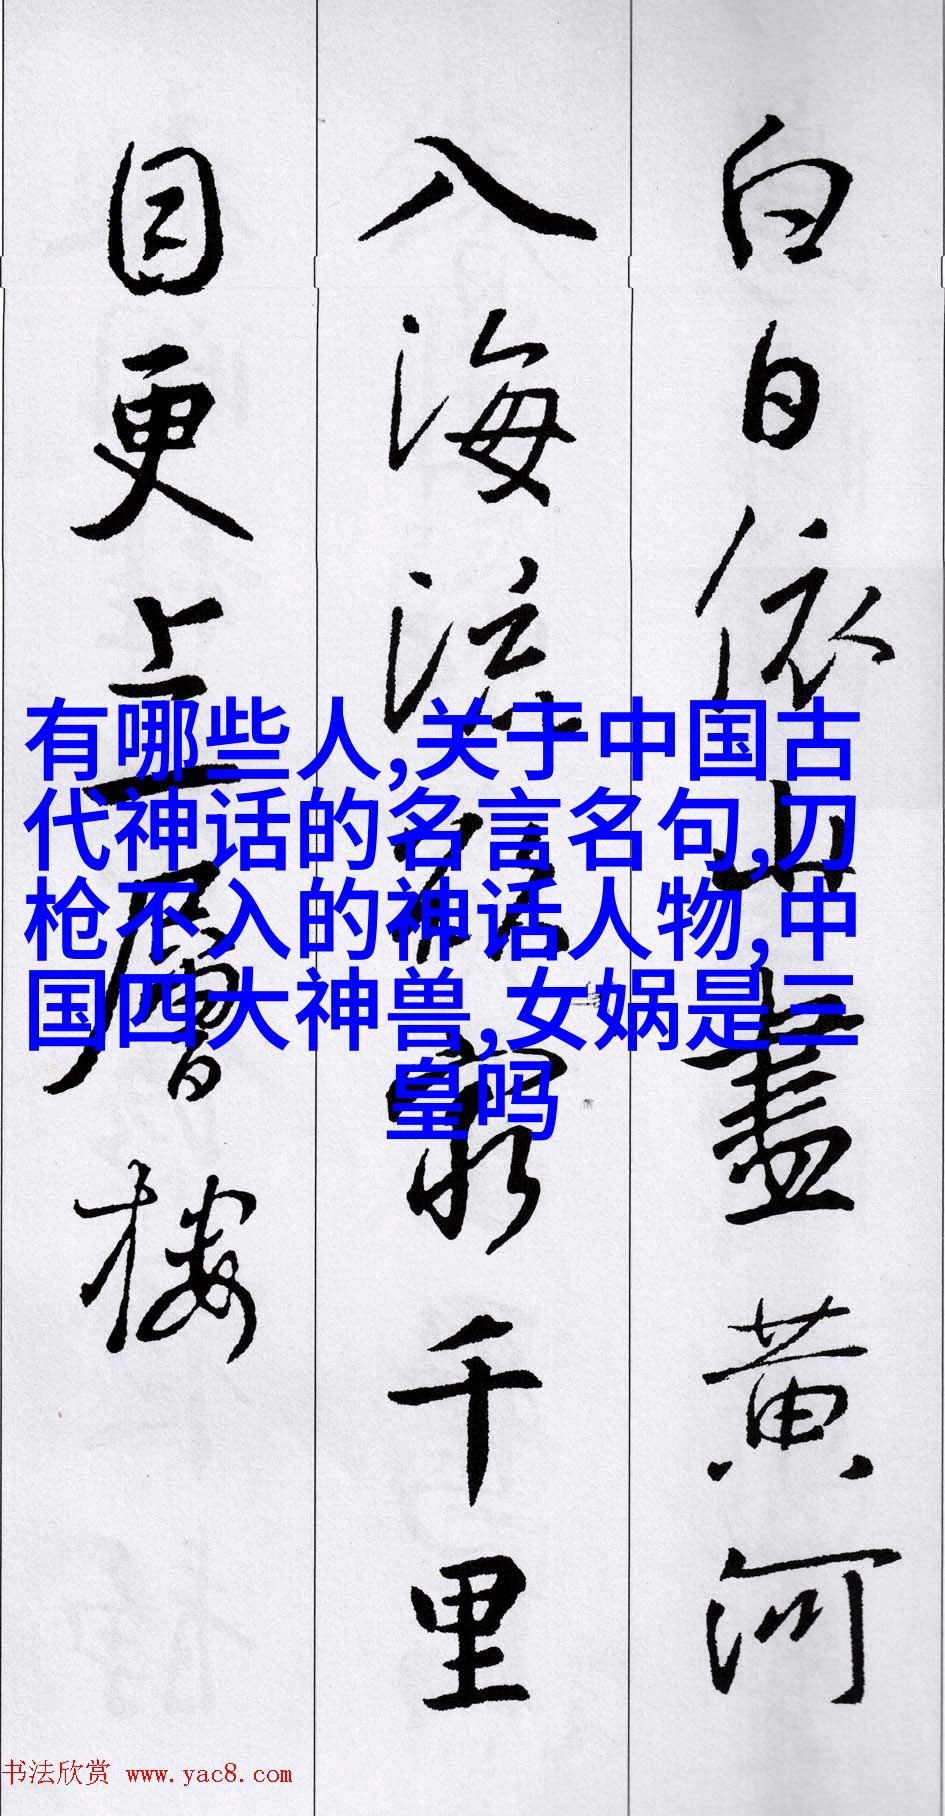 白日依山盡黃河
入海流欲窮千里
目更上一層樓
有哪些人,关于中国古
代神话的名言名句,刀
枪不入的神话人物,中
国四大神兽,女娲是三
皇吗
书法欣赏 www.yac8.com